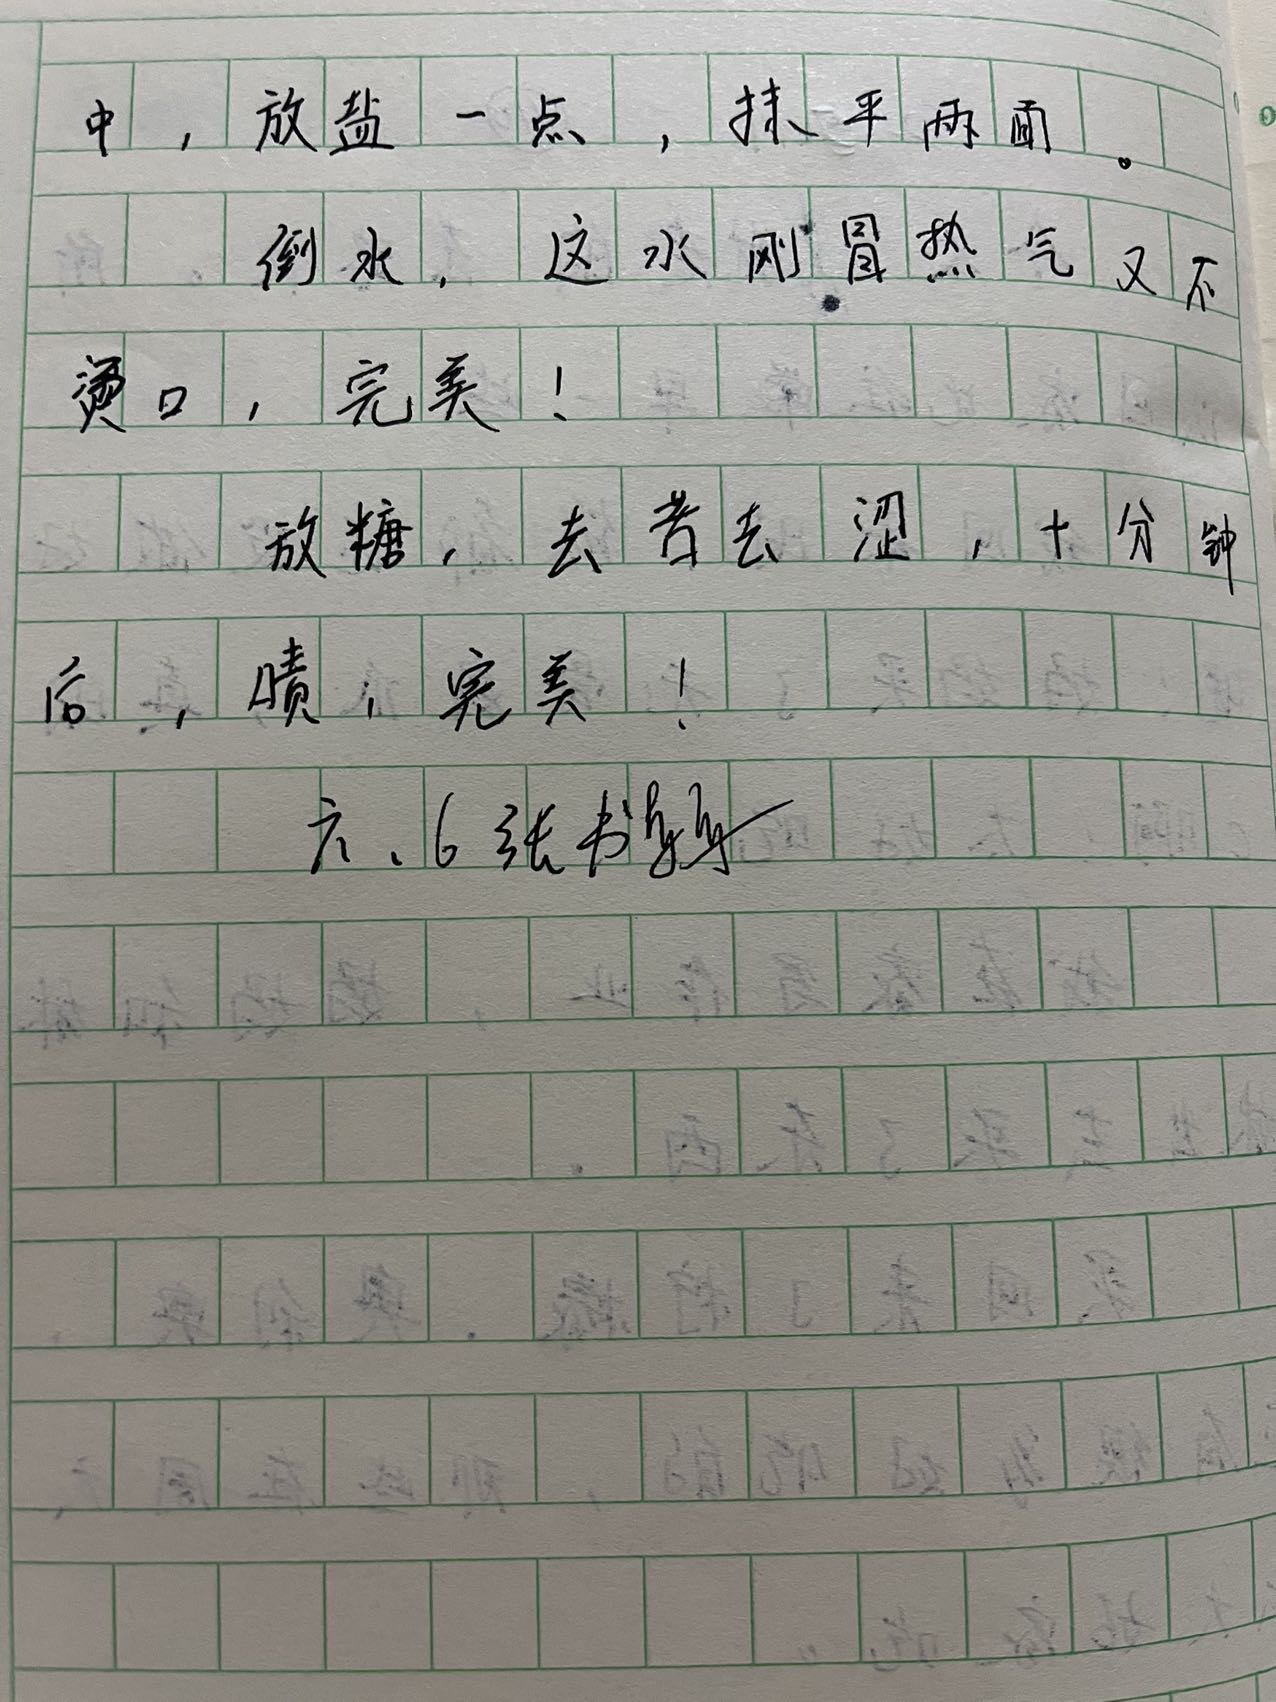 中，放盐一点，抹平两面。
倒水，这水刚冒热气又不
烫口，完美！
放糖，去苦去涩，十分钟
后，啧，完美！
六、6 张书